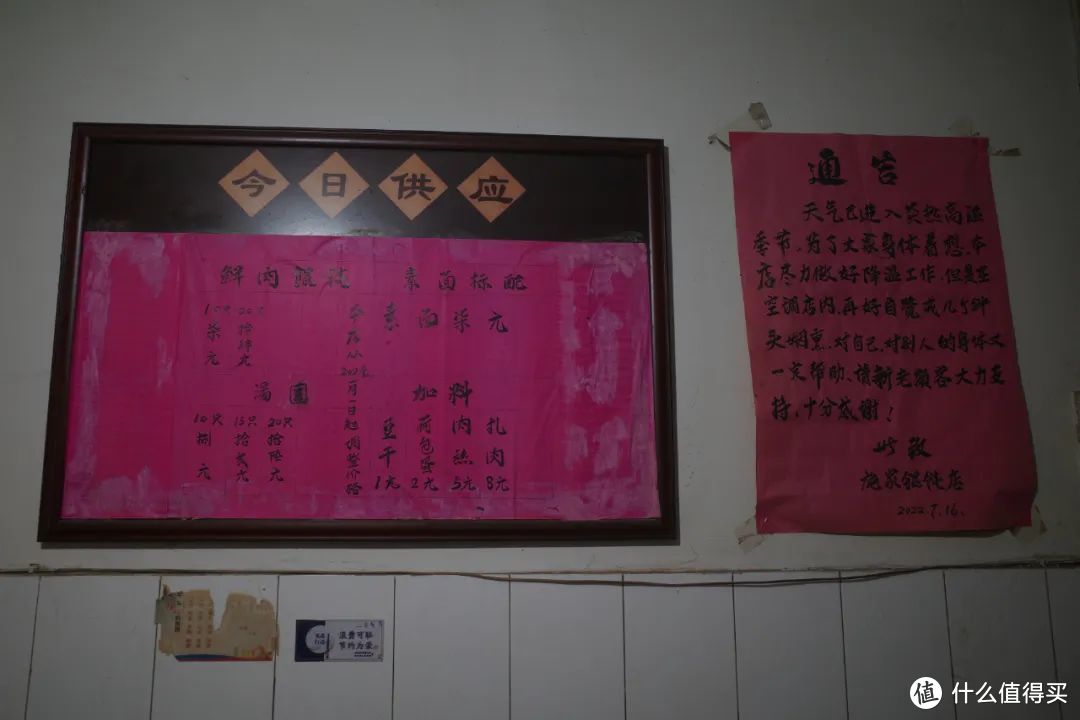 今日供应
鲜肉馄饨
10只 柒元
20只 拾肆元
本店从202 年 月一日起调整价格
素面标配
素面柒元
汤圆
10只 捌元
15只 拾贰元
20只 拾陆元
加料
豆干1元
荷包蛋2元
肉 5元
扎肉8元
通告
天气已进入炎热高温
季节、为了大家身体着想、本
店尽力做好降温工作、但是在
空调店内、再好自觉戒几分钟
头烟熏、对自己、对别人的身体又
一定帮助、请新老顾客大力支
持、十分感谢！
此致
施家馄饨店
2022.7.16.
浪费可耻
节约为荣
值 什么值得买